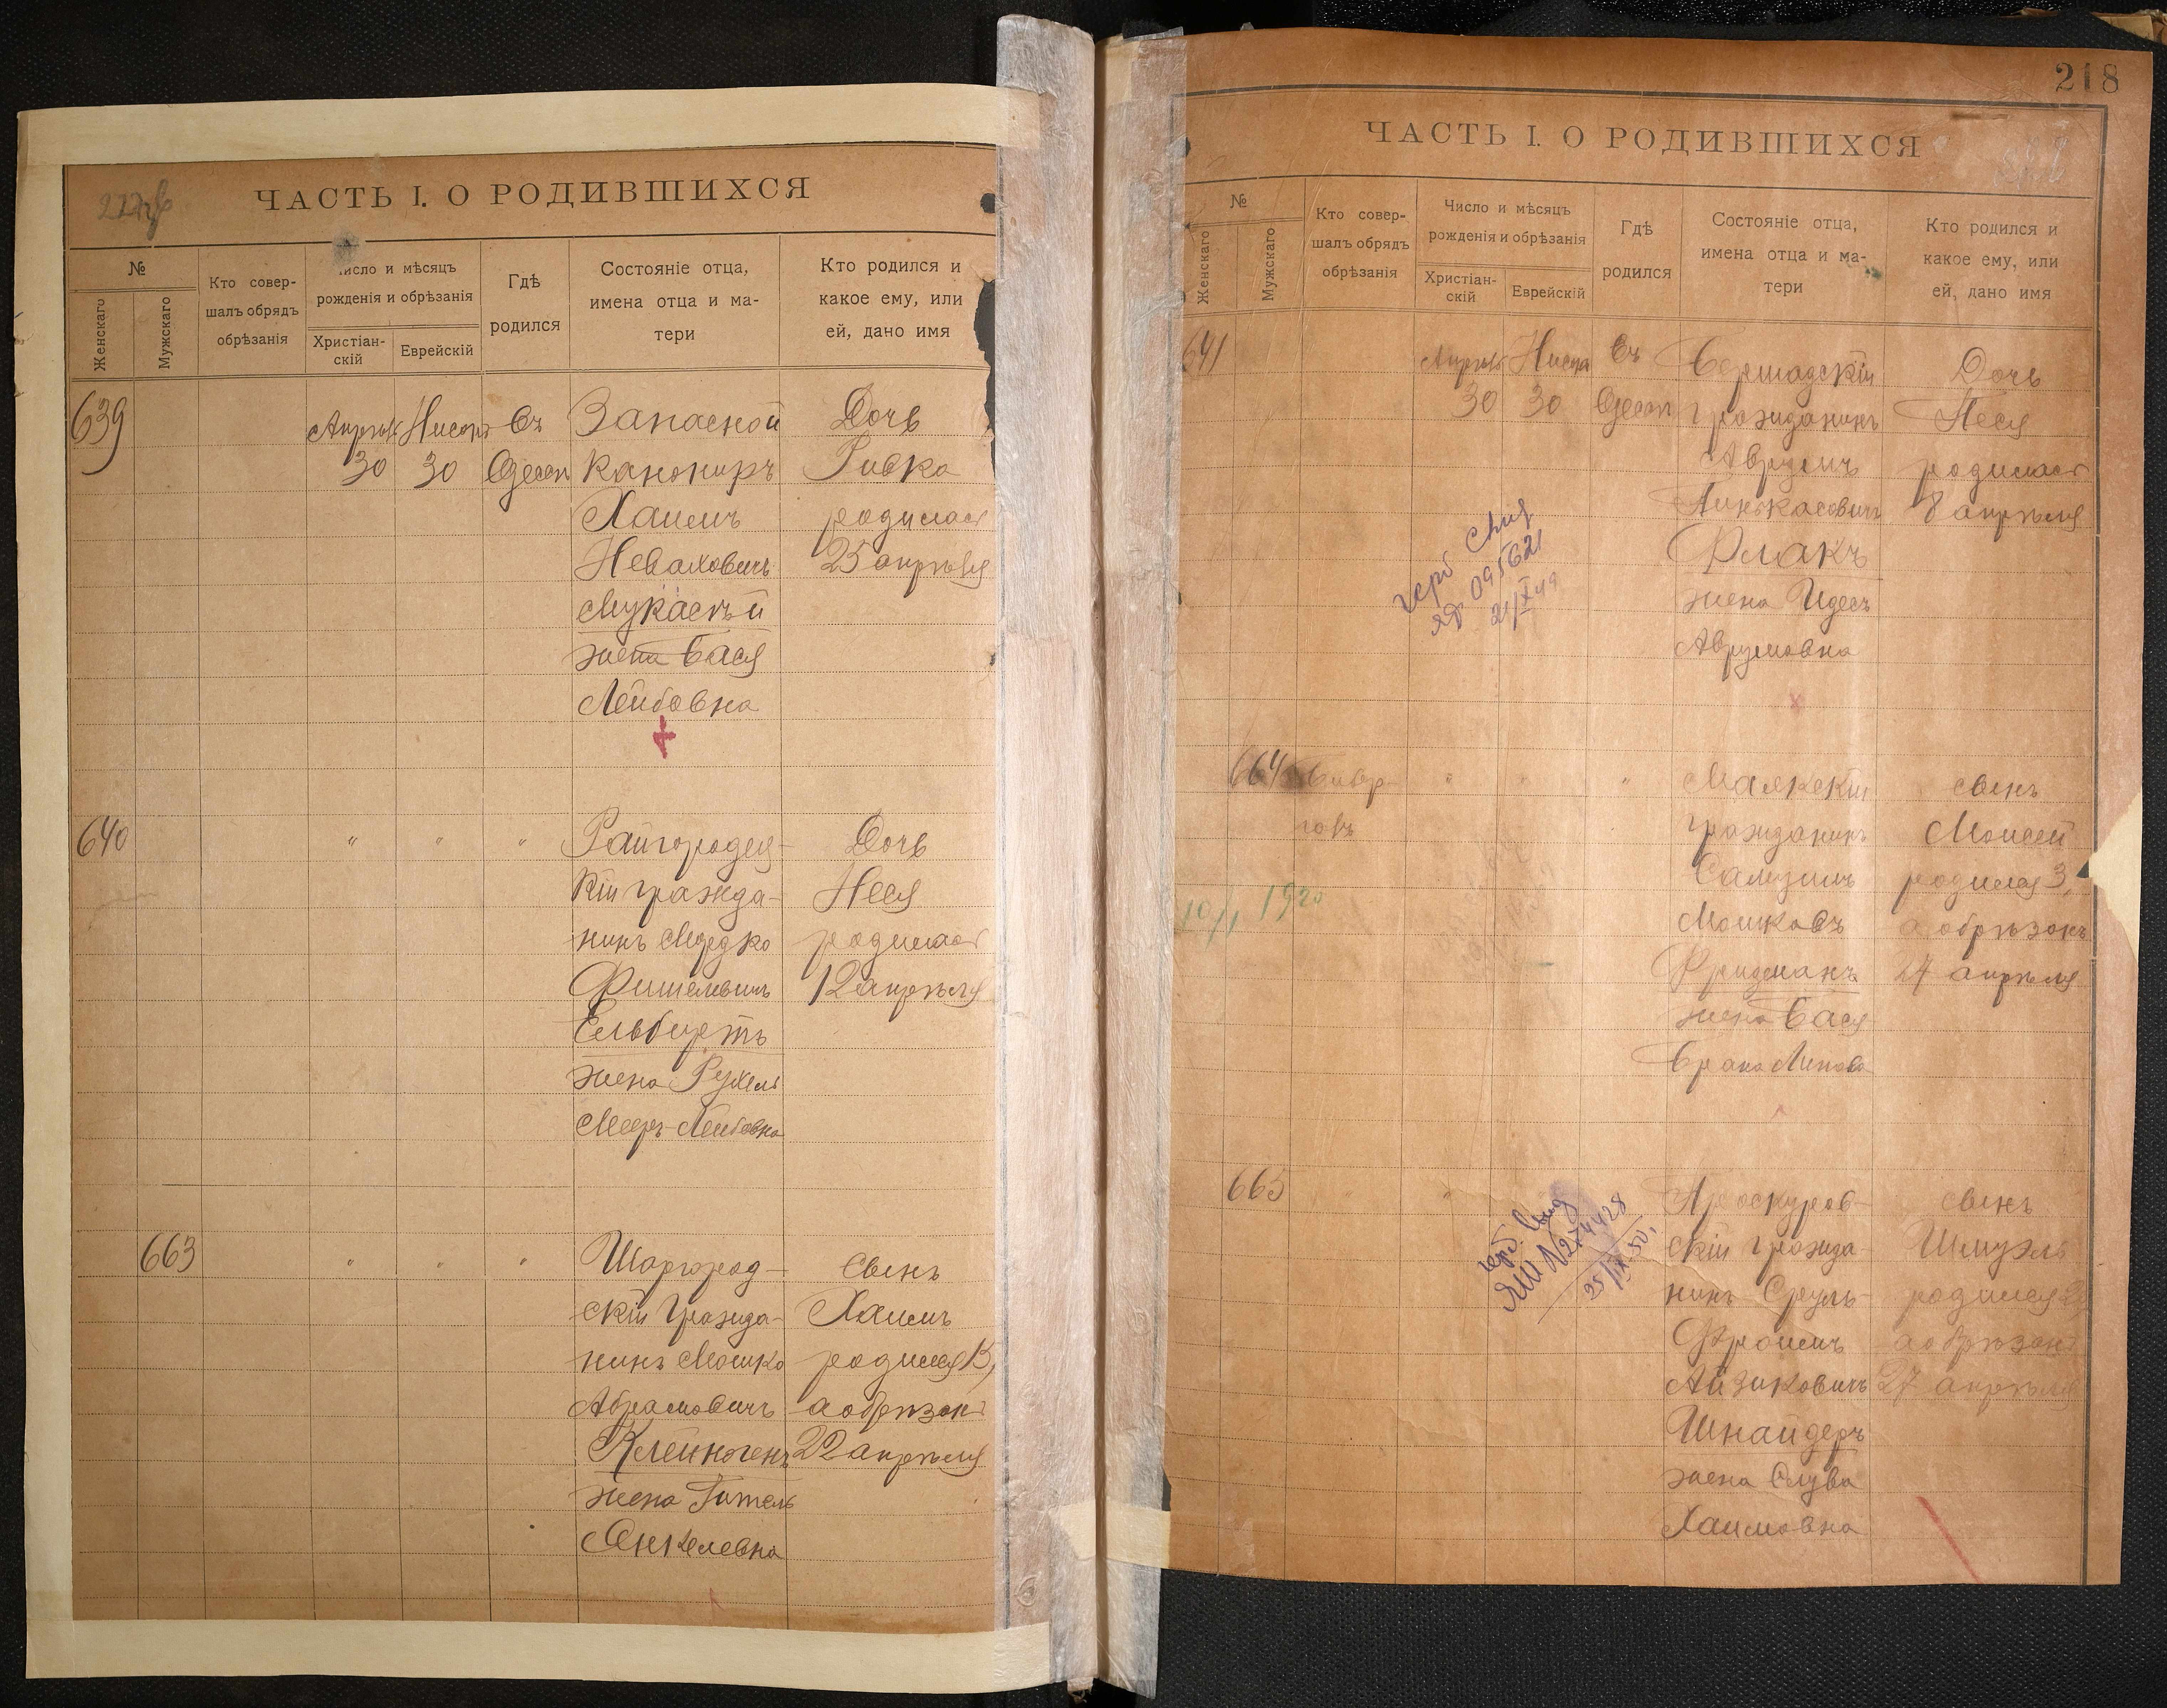 ЧАСТЬ I. О РОДИВШИХСЯ
№
Женскаго
Мужскаго
Кто совер-
шалъ обрядъ
обрѣзанія
Число и мѣсяцъ
рожденія и обрѣзанія
Христіан-
скій
Еврейскій
Гдѣ
родился
Состояніе отца,
имена отца и ма-
тери
Кто родился и
какое ему, или
ей, дано имя
639
Апрѣль
30
Нисонъ
30
Въ
Одессѣ
Запасной
Канониръ
Хаимъ
Неваховичъ
жена Бася
Лейбовна
Дочь
Ривка
родилась
25 апрѣля
640
" " "
Райгородец-
кій гражда-
нинъ Мордко
Фишелевичъ
жена Рухель
Мееръ-Лейбовна
Дочь
Неся
родилась
12 апрѣля
663
" " "
Шаргород-
скій гражда-
нинъ Мошко
Абрамовичъ
жена Гитель
Янкелевна
Сынъ
Хаимъ
родился 15,
а обрѣзанъ
22 апрѣля
218
ЧАСТЬ I. О РОДИВШИХСЯ
№
Женскаго
Мужскаго
Кто совер-
шалъ обрядъ
обрѣзанія
Число и мѣсяцъ
рожденія и обрѣзанія
Христіан-
скій
Еврейскій
Гдѣ
родился
Состояніе отца,
имена отца и ма-
тери
Кто родился и
какое ему, или
ей, дано имя
641
Апрѣль
30
Нисонъ
30
Въ
Одессѣ
Бершадскій
гражданинъ
Аврумъ
Пинкасовичъ
Флакъ
жена Идесъ
Аврумовна
Дочь
Песя
родилась
8 апрѣля
095621
21/X 49
664
" " "
Маякскій
гражданинъ
Самуилъ
Мошковъ
Фридманъ
жена Бася
сынъ
Моисей
родился 3,
а обрѣзанъ
27 апрѣля
10/I 1920
665
Проскуров-
скій гражда-
нинъ Сруль-
Фроимъ
Айзиковичъ
Шнайдеръ
жена Слува
Хаимовна
сынъ
Шмуэль
родился
а обрѣзанъ
27 апрѣля